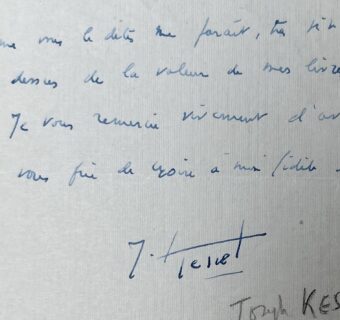 me vous le dites me paraît, très si
dessus de la valeur de mes livre
Je vous remercie vivement d'av
vous prie de croire à mon fidèle
J. Kessel
Joseph KES